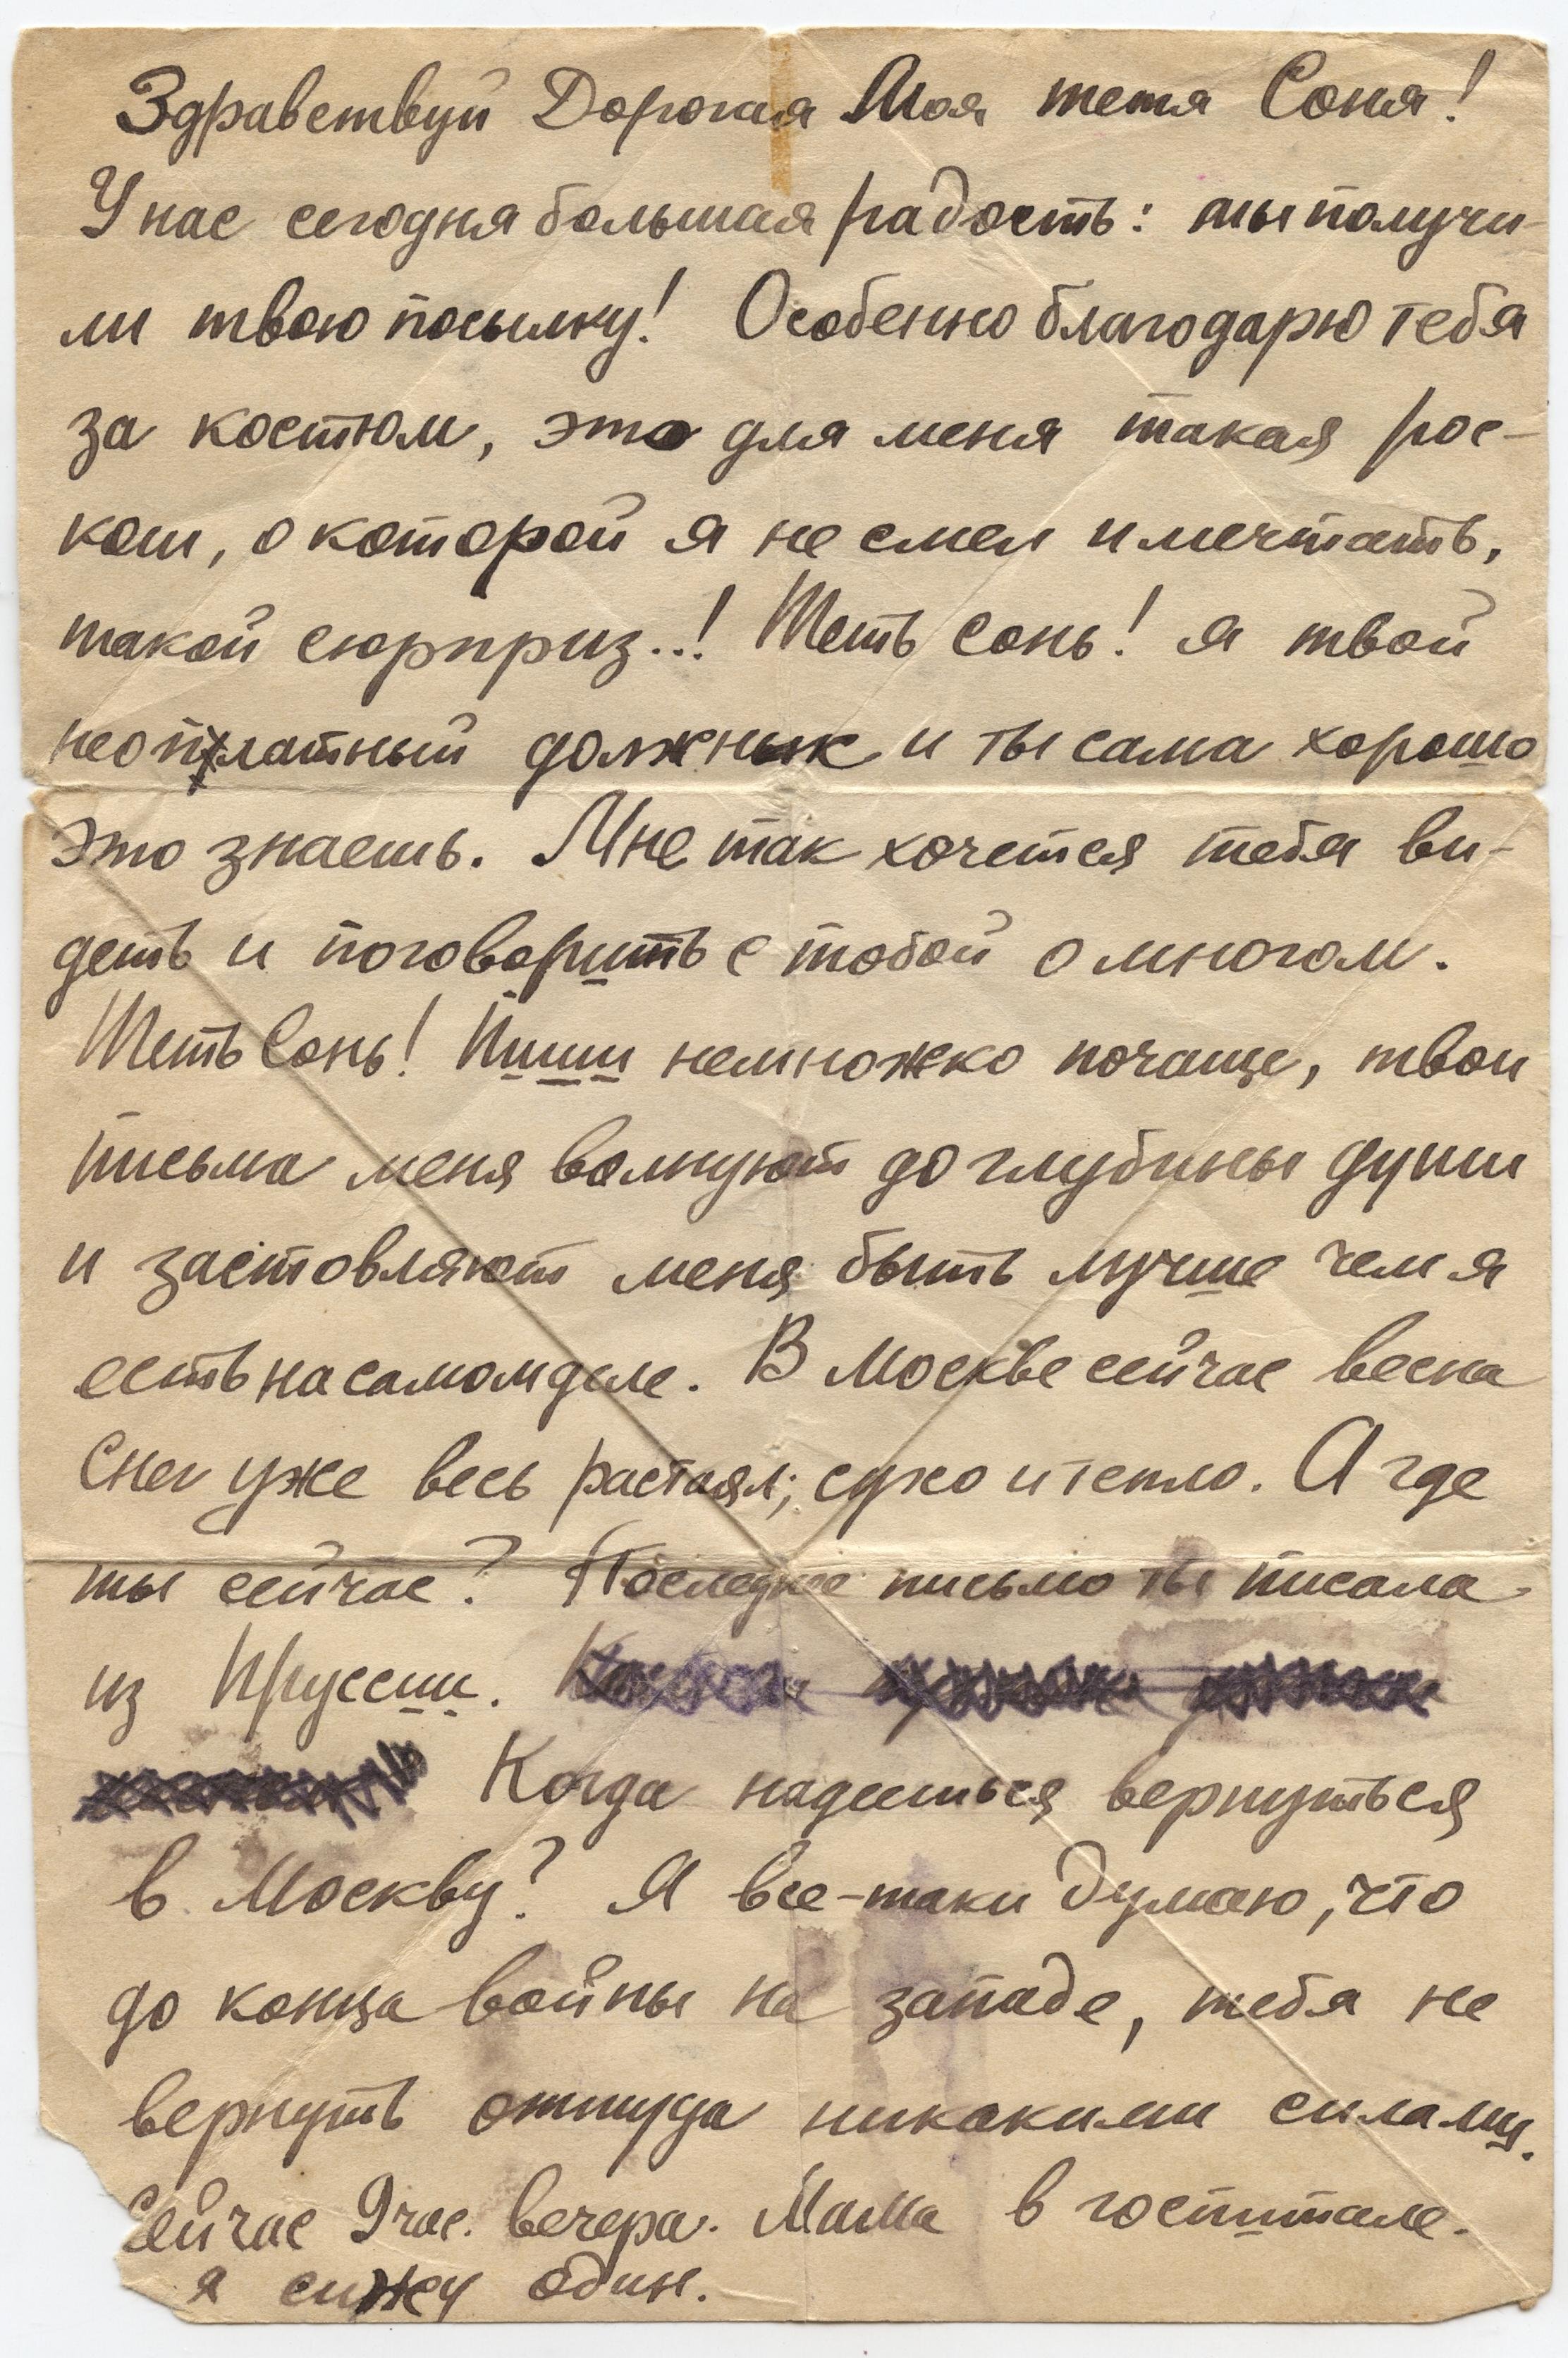 Здравствуй Дорогая Моя тетя Соня!
У нас сегодня большая радость: мы получи-
ли твою посылку! Особенно благодарю тебя
за костюм, это для меня такая рос-
кош, о которой я не смел и мечтать,
такой сюрприз..! Теть Сонь! я твой
неоплатный должник и ты сама хорошо
это знаешь. Мне так хочется тебя ви-
деть и поговорить с тобой о многом.
Теть Сонь! Пиши немножко почаще, твои
письма меня волнуют до глубины души
и застовляют меня быть лучше чем я
есть на самом деле. В Москве сейчас весна
Снег уже весь растаял; сухо и тепло. А где
ты сейчас? Последнее письмо ты писала
из Пруссии.
Когда надеешься вернуться
в Москву? Я все-таки думаю, что
до конца войны на западе, тебя не
вернуть оттуда никакими силами.
Сейчас 9 час. вечера. Мама в госпитале.
я сижу один.